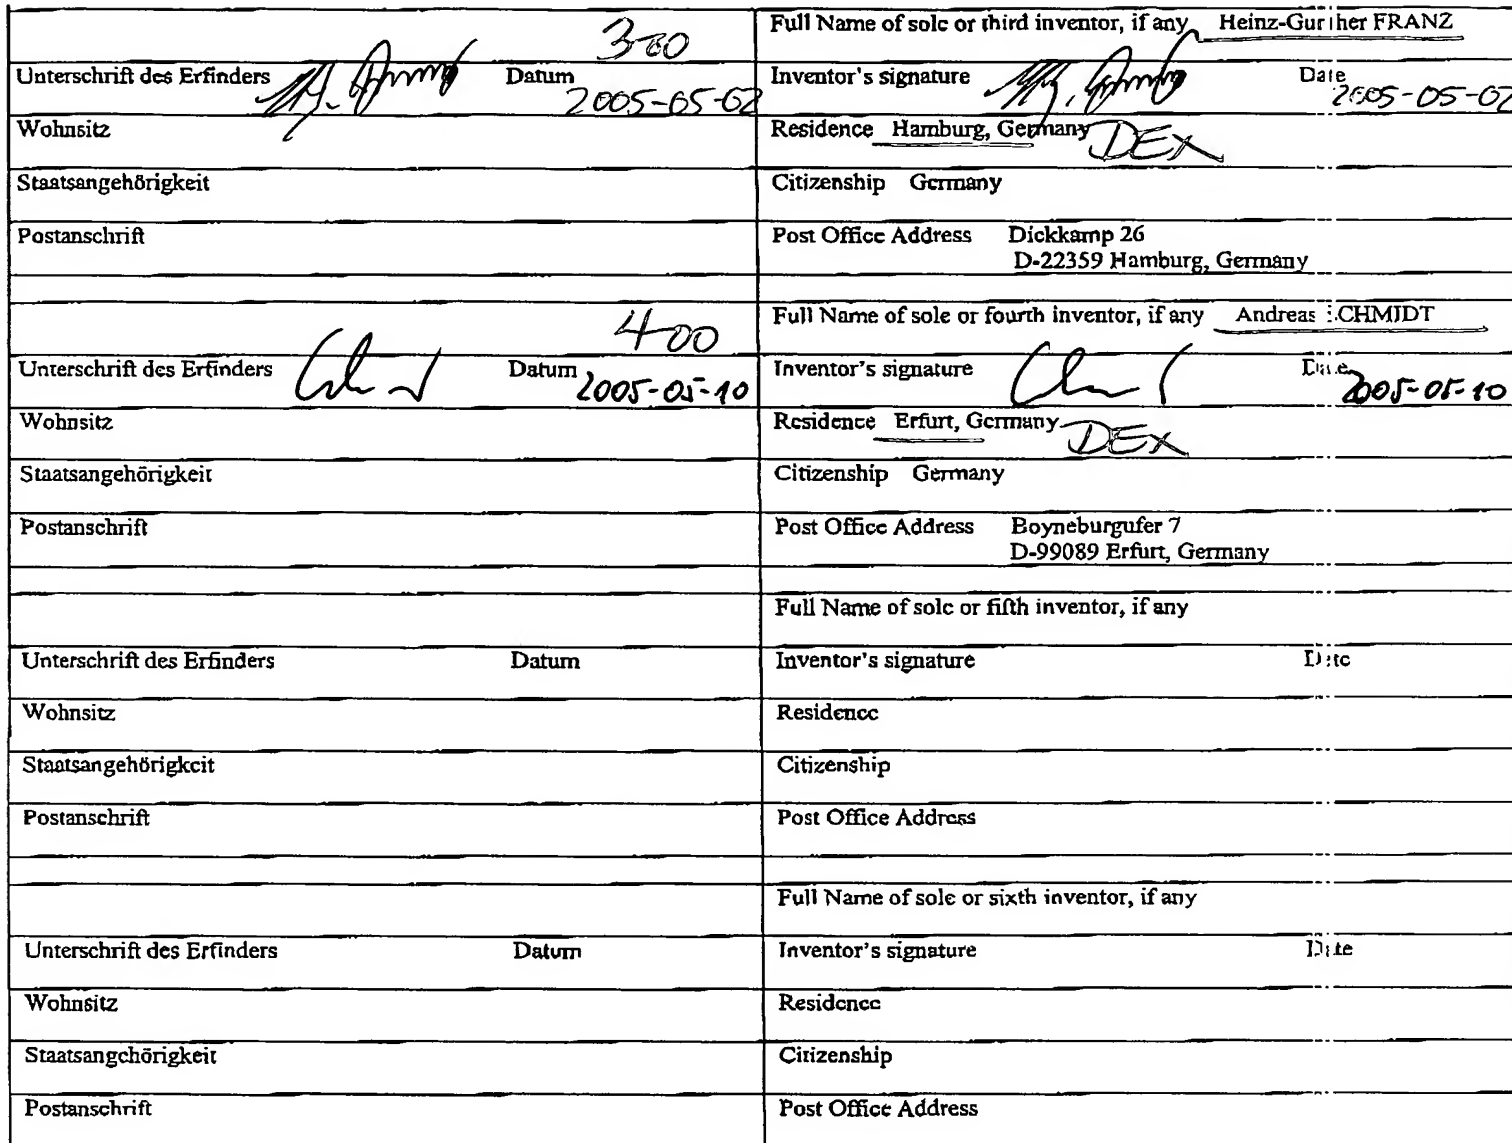 3-00
Full Name of sole or third inventor, if any Heinz-Gunther FRANZ
Unterschrift des Erfinders Datum 2005-05-02
Inventor's signature Date 2005-05-02
Wohnsitz
Residence Hamburg, Germany DEX
Staatsangehörigkeit
Citizenship Germany
Postanschrift
Post Office Address Dickkamp 26
D-22359 Hamburg, Germany
4-00
Full Name of sole or fourth inventor, if any Andreas SCHMIDT
Unterschrift des Erfinders Datum 2005-05-10
Inventor's signature Date 2005-05-10
Wohnsitz
Residence Erfurt, Germany DEX
Staatsangehörigkeit
Citizenship Germany
Postanschrift
Post Office Address Boyneburgufer 7
D-99089 Erfurt, Germany
Full Name of sole or fifth inventor, if any
Unterschrift des Erfinders Datum
Inventor's signature Date
Wohnsitz
Residence
Staatsangehörigkeit
Citizenship
Postanschrift
Post Office Address
Full Name of sole or sixth inventor, if any
Unterschrift des Erfinders Datum
Inventor's signature Date
Wohnsitz
Residence
Staatsangehörigkeit
Citizenship
Postanschrift
Post Office Address